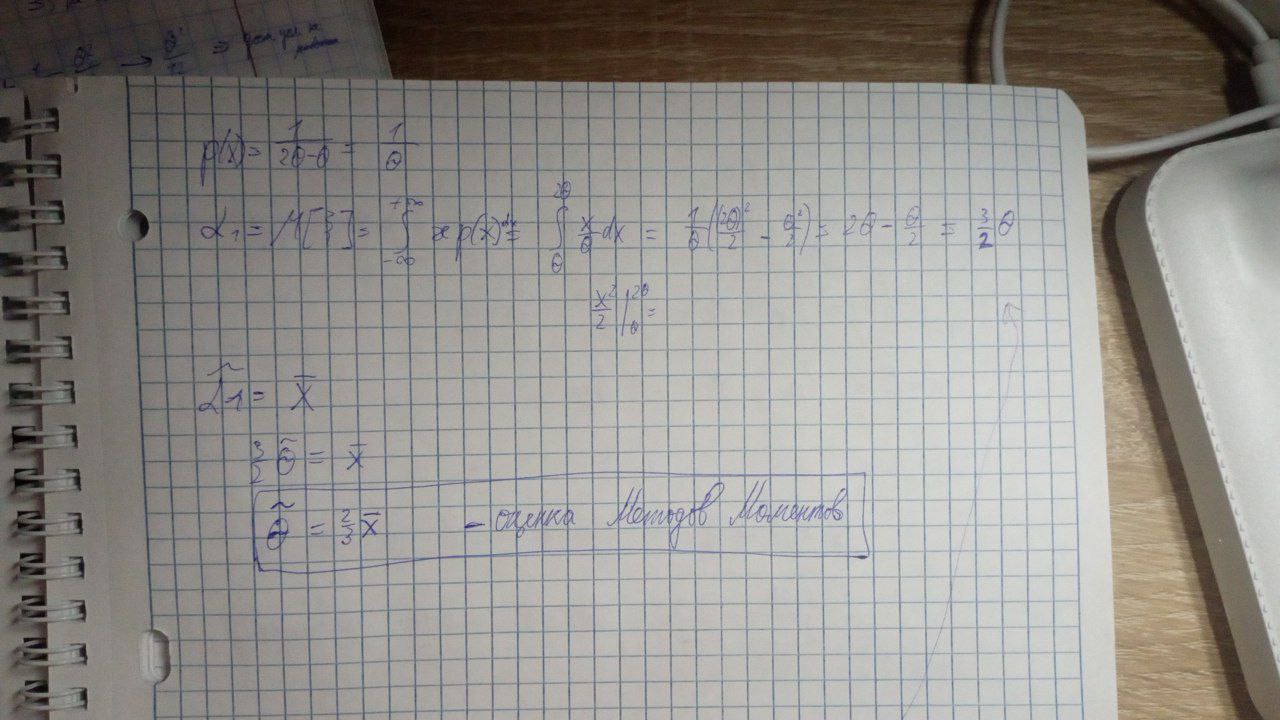 θ²/12 ⇒
p(x) = 1/(2θ-θ) = 1/θ
α₁ = M[ξ] = ∫_{-∞}^{+∞} x p(x) dx = ∫_θ^{2θ} x/θ dx = 1/θ ((2θ)²/2 - θ²/2) = 2θ - θ/2 = 3/2 θ
x²/2 |_θ^{2θ} =
α̃₁ = x̄
3/2 θ̃ = x̄
θ̃ = 2/3 x̄ - оценка Методов Моментов